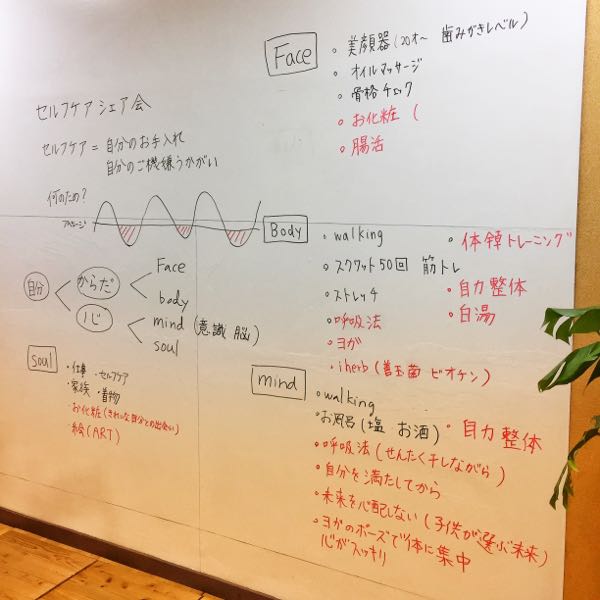 セルフケア シェア会
セルフケア = 自分のお手入れ
自分のご機嫌うかがい
何のため?
自分
からだ
Face
body
心
mind (意識 脳)
soul
soul
・仕事 ・セルフケア
・家族 ・着物
・お化粧(きれいな自分との出会い)
・絵(ART)
Face
・美顔器(20才〜 歯みがきレベル)
・オイルマッサージ
・骨格チェック
・お化粧(
・腸活
Body
・walking
・スクワット50回 筋トレ
・ストレッチ
・呼吸法
・ヨガ
・iherb(善玉菌 ビオケン)
・体幹トレーニング
・自力整体
・白湯
mind
・walking
・お風呂(塩 お酒)
・自力整体
・呼吸法(せんたく干しながら)
・自分を満たしてから
・未来を心配しない(子供が選ぶ未来)
・ヨガのポーズで体に集中
心がスッキリ